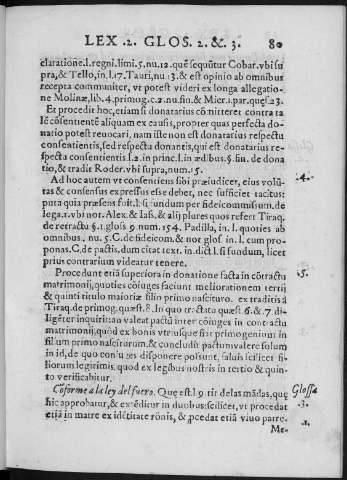 LEX .2. GLOS. 2. &. 3. 80
claratione.l.regni.limi.5.nu.12.quẽ sequũtur Cobar.vbi su
pra,& Tello,in.l.17.Tauri,nu 13.& est opinio ab omnibus
recepta communiter, vt potest videri ex longa allegatio-
ne Molinæ,lib.4.primog.c.2.nu.fin.& Mier.1.par.quęs 23.
Et procedit hoc, etiam si donatarius cõmitteret contra ta
lẽ cõsentientẽ aliquam ex causis, propter quas perfecta do-
natio potest reuocari, nam iste non est donatarius respectu
consentientis,sed respectu donantis,qui est donatarius re-
specta consentientis l.2.in princ.l.in ædibus.§.fin.de dona
tio,& tradit Roder.vbi supra,num.15.
Ad hoc autem vt consentiens sibi præiudicet, eius volũ-
tas & consensus expressus esse debet, nec sufficiet tacitus:
puta quia præsens fuit.l.si fundum per fideicommissum.de
lega.1.vbi not. Alex.& Ias. & alij plures quos refert Tiraq.
de retractu §.1.glos 9 num.154. Padilla, in.l. quoties ab
omnibus. nu. 5.C.de fideicom.& not glos in.l. cum pro-
ponas.C.de pactis.dum citat text.in.dict l.si fundum, licet
prius contrarium videatur tenere.
.4.
Procedunt etiã superiora in donatione facta in cõtractu
matrimonij, quoties cõiuges faciunt meliorationem tertij
& quinti titulo maioriæ filio primo nascituro. ex traditis á
Tiraq.de primog.quæst.8.In quo tractatu quæst 6.& 7 di-
ligẽter inquiritur an valeat pactũ inter cõiuges in contractu
matrimonij,quòd ex bonis vtriusque fiat primogenium in
filium primo nasciturum,& concludit pactum valere solum
in id, de quo coniuges disponere possunt, saluis scilicet fi-
liorum legitimis, quod ex legibus nostris in tertio & quin-
to verificabitur.
.5.
Cõforme a la ley del fuero. Quę est.l 9 tit de las mãdas, quę
hic approbatur, & extẽditur in duobus: scilicet, vt procedat
etiã in matre ex idẽtitate rõnis, & ꝓcedat etiã viuo patre.
Glossa
.3.
.1.
Me-